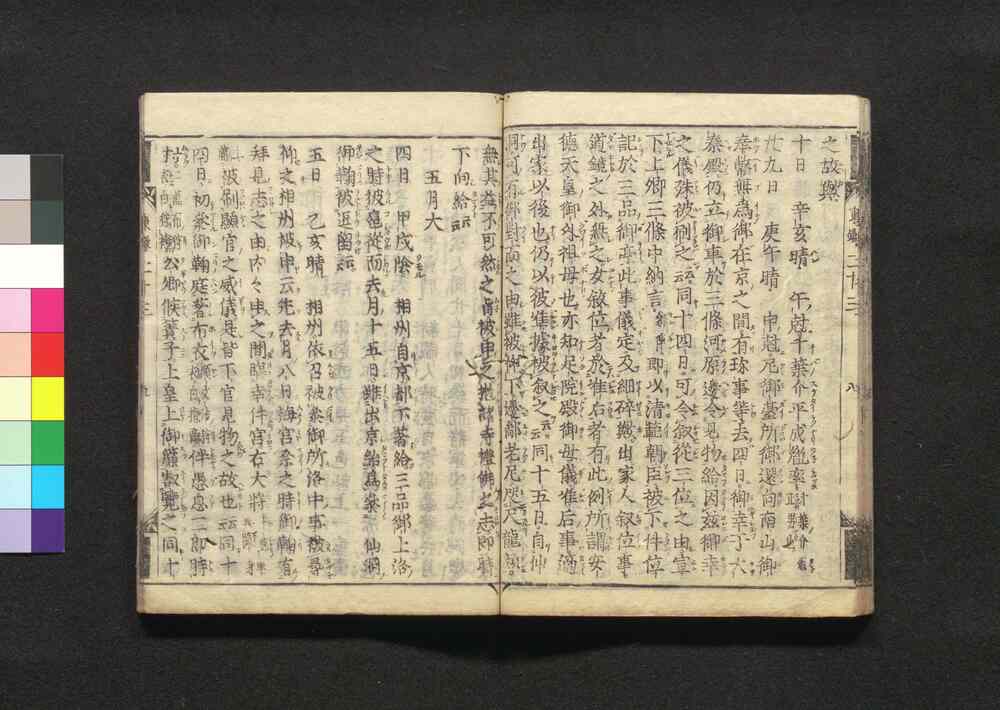 之故歟
十日 辛亥晴 午尅千葉介平成胤卒
廿九日 庚午晴 申尅尼御臺所御還向南山御
奉幣無爲御在京之間有珎事等去四日御幸于六
秦殿仍立御車於三條河原邊令見物給因茲御幸
之儀殊被刷之云云同十四日可令叙從三位之由宣
下上卿三條中納言 即以清範朝臣被下件位
記於三品御亭此事儀定及細砕歟出家人叙位事
道鏡之外無之女叙位者於准后者有此例所謂安
德天皇御外祖母也亦知足院殿御母儀准后事適
出家以後也仍以彼准據被叙之云云同十五日自仙
洞可有御對面之由雖被仰下邊鄙老尼咫尺龍顔
無其益不可然之旨被申之抛諸寺禮佛之志即時
下向給云云
五月大
四日 甲戌陰 相州自京都下着給三品御上洛
之時被扈從而去月十五日雖出京給爲參仙洞
御鞠被逗留云云
五日 乙亥晴 相州依召被參御所洛中事被尋
仰之相州被申云先去月八日梅宮祭之時御鞠有
拜見志之由内々申之間臨幸件宮右大將
被刷顯官之威儀是皆下官見物之故也云云同十
四日初參御鞠庭著布衣 伴愚息二郎時
公卿候簀子上皇上御簾叡覽之同十
東鑑二十三
八
東鑑二十三
九